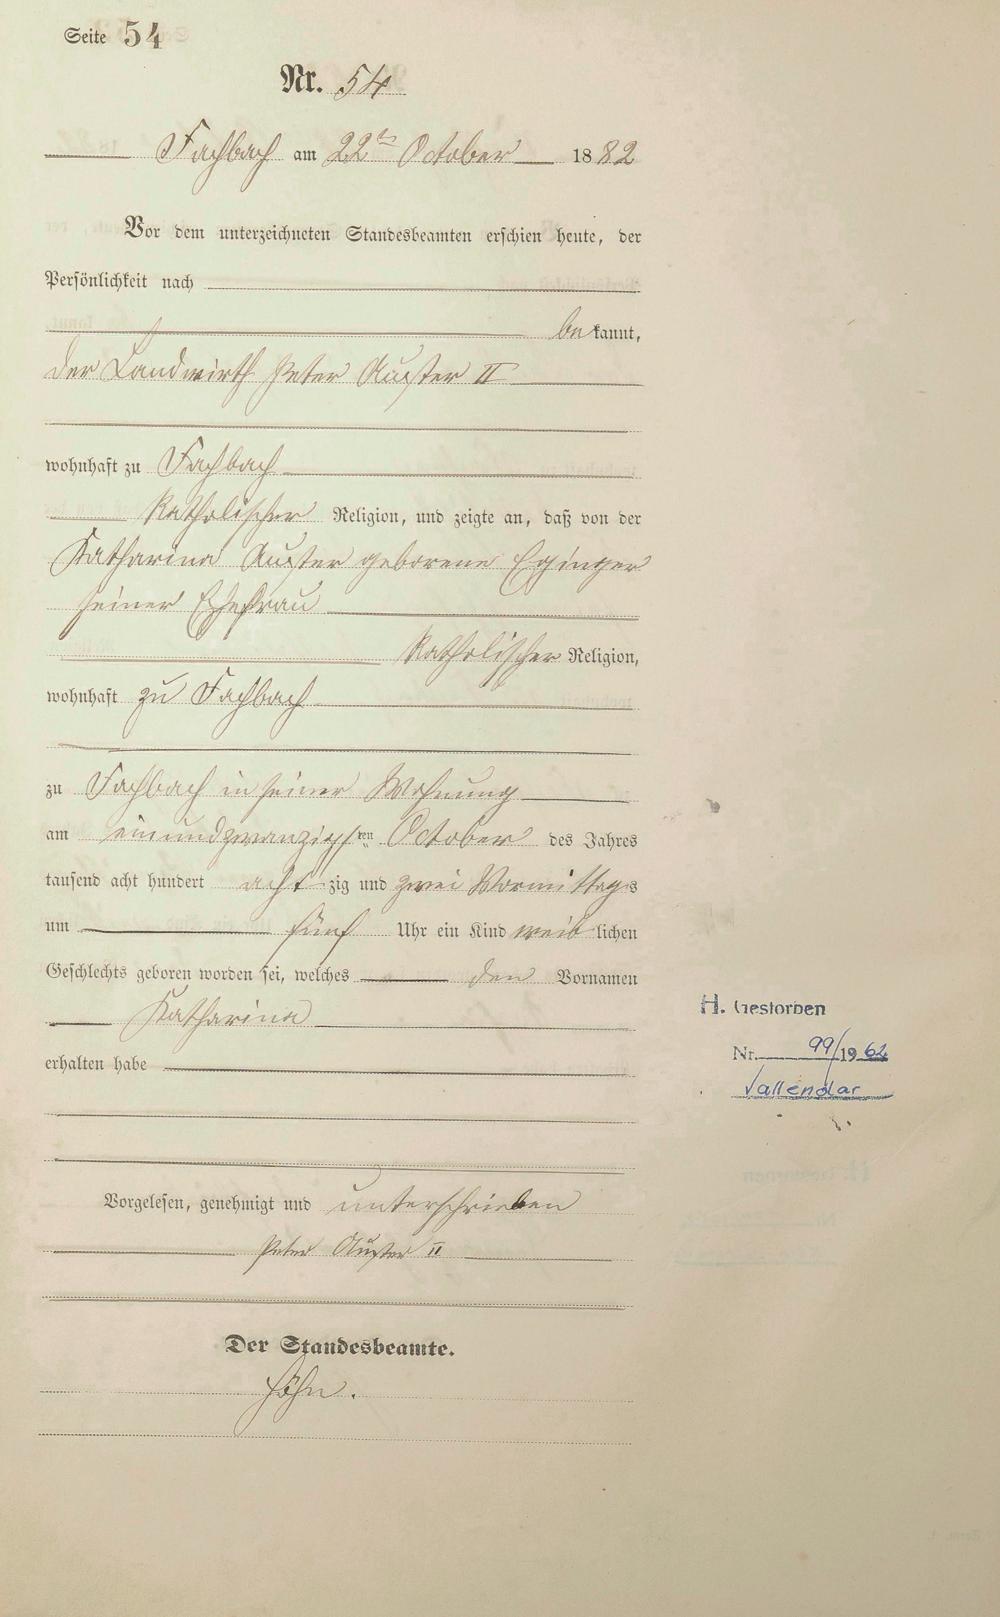 Seite 54
Nr. 54
Fachbach am 22ten October 1882
Vor dem unterzeichneten Standesbeamten erschien heute, der
Persönlichkeit nach
bekannt,
der Landwirth Peter Auster II
wohnhaft zu Fachbach
katholischer Religion, und zeigte an, daß von der
Katharina Auster geborene
seiner Ehefrau
katholischer Religion,
wohnhaft zu Fachbach
zu Fachbach in seiner Wohnung
am einundzwanzigsten October des Jahres
tausend acht hundert achtzig und zwei Vormittags
um fünf Uhr ein Kind weiblichen
Geschlechts geboren worden sei, welches den Vornamen
Katharina
erhalten habe
H. Gestorben
Nr. 99/1962
Vallendar
Vorgelesen, genehmigt und unterschrieben
Peter Auster II
Der Standesbeamte.
Höhn.